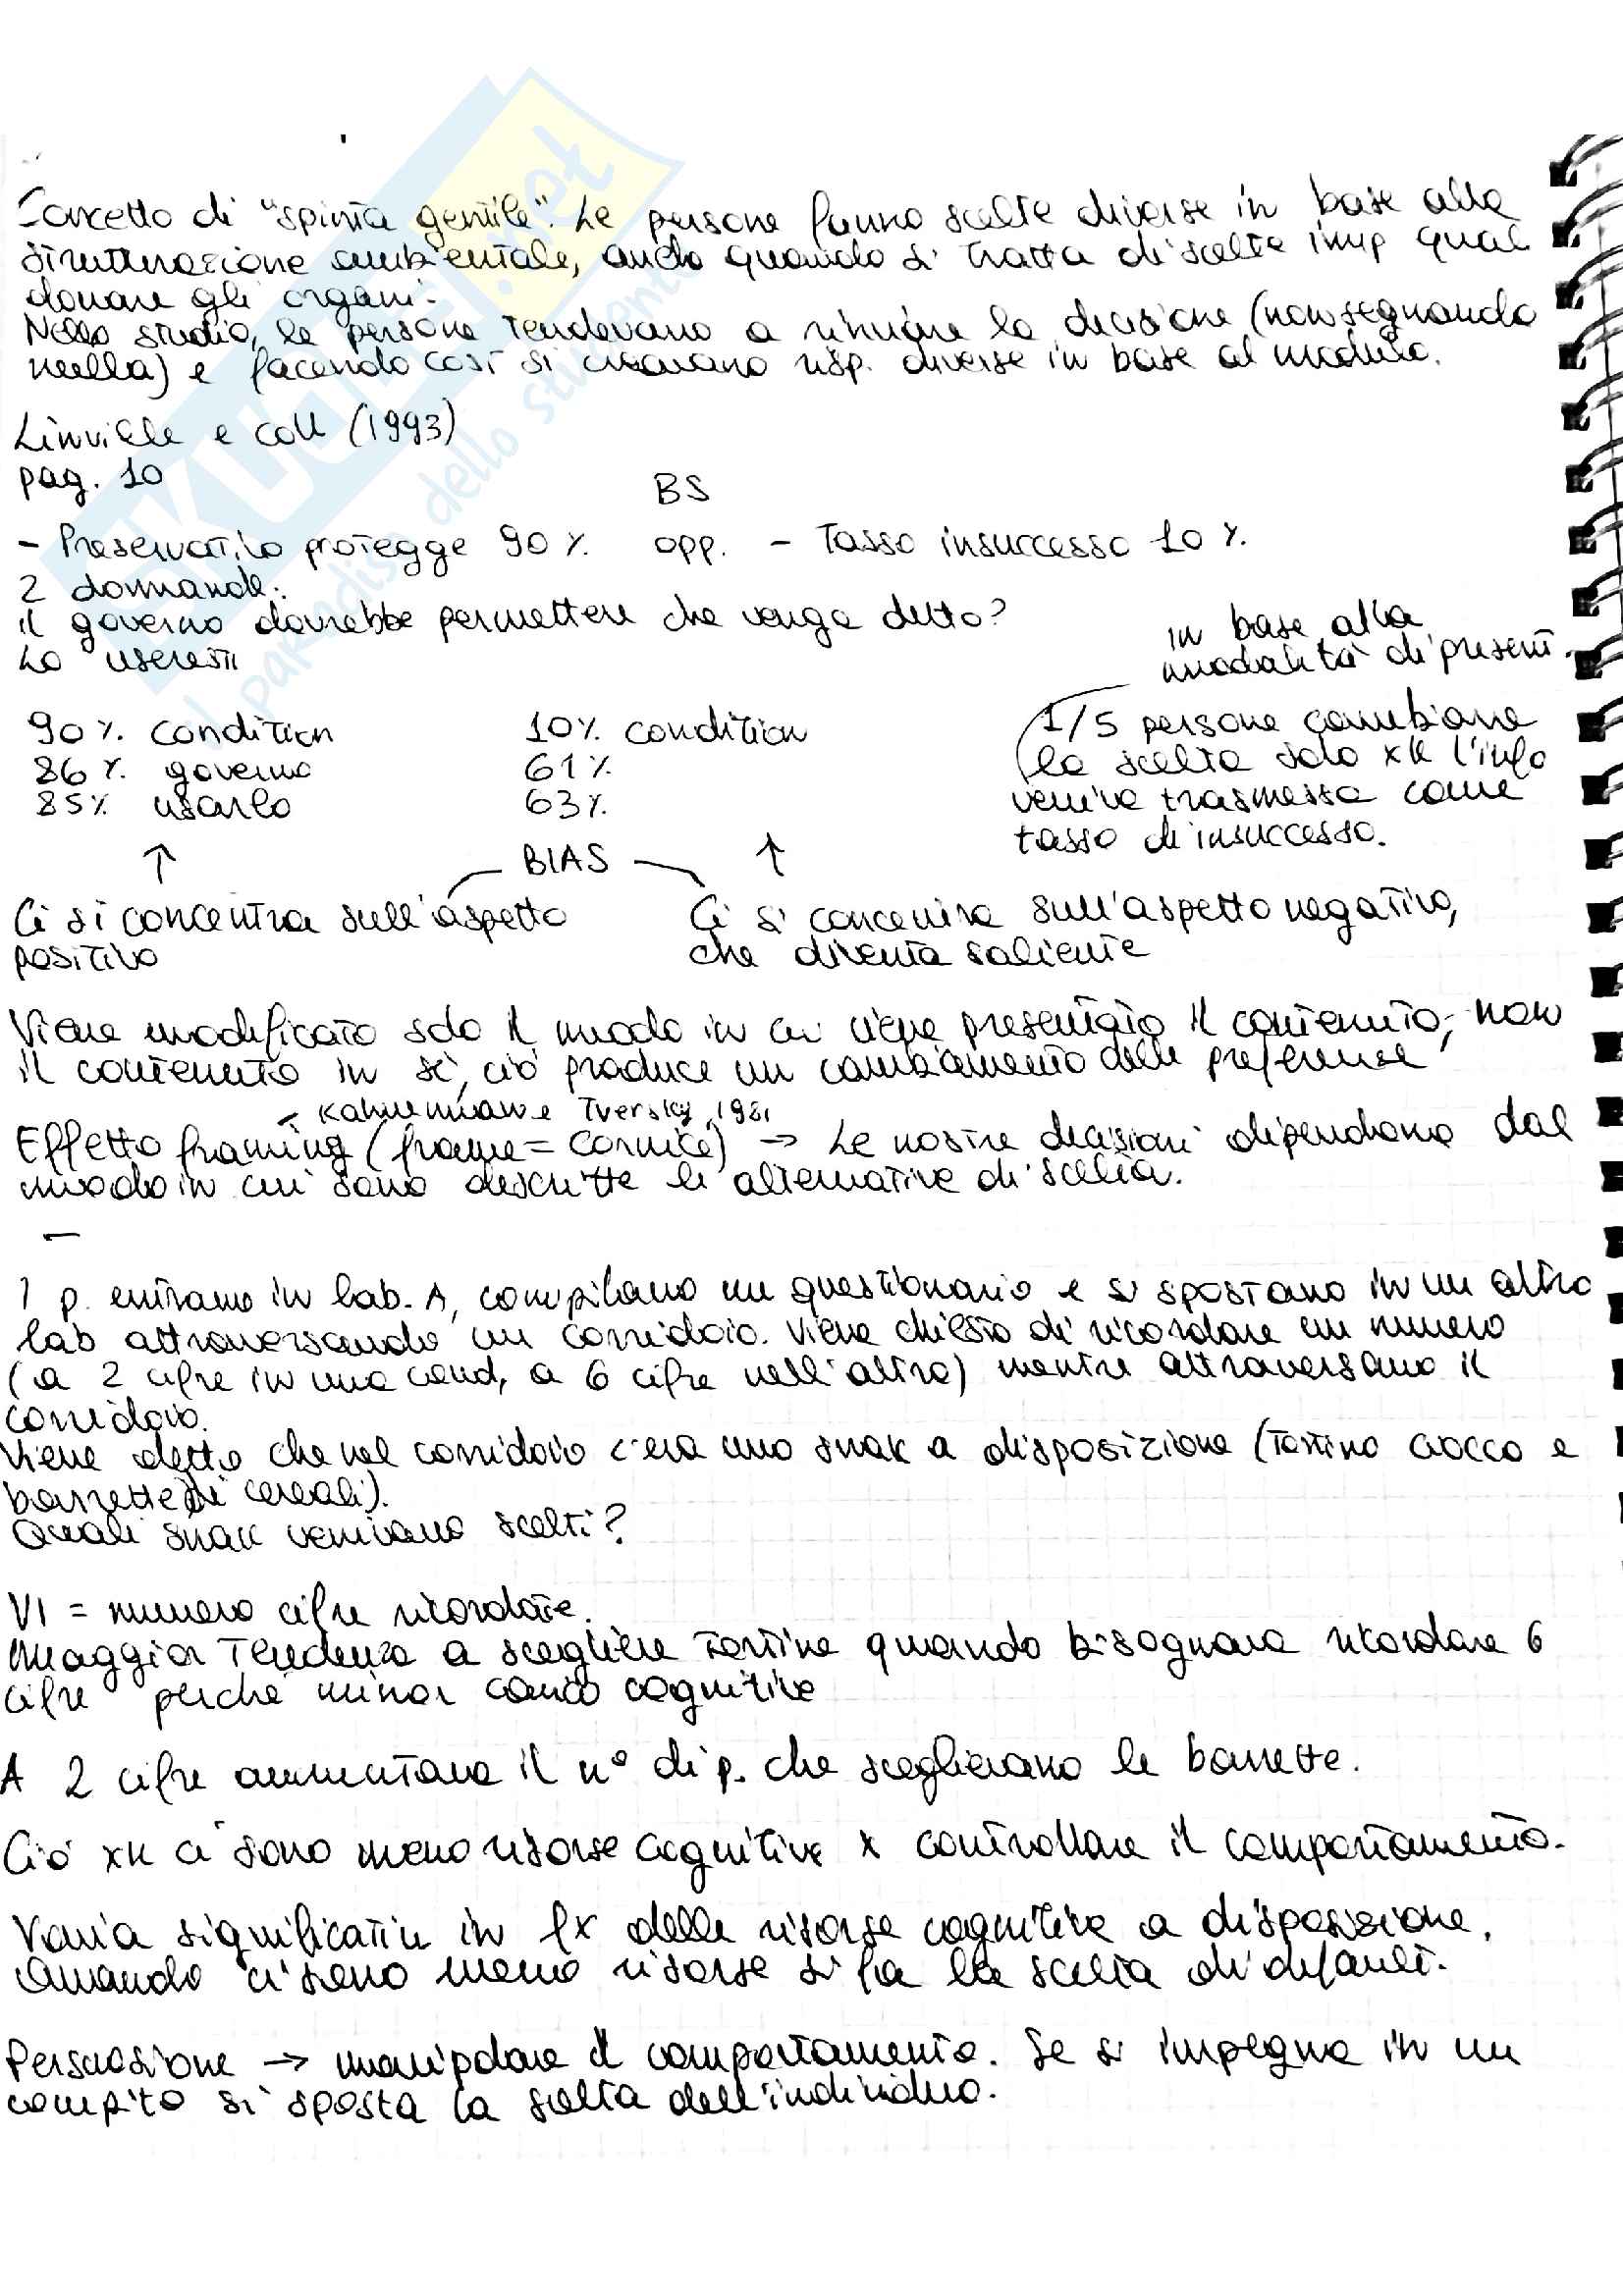 Concetto di "spinta gentile". Le persone fanno scelte diverse in base alla
strutturazione ambientale, anche quando si tratta di scelte imp quali
donare gli organi.
Nello studio, le persone tendevano a rinviare la decisione (non segnando
nulla) e facendo così si avevano risp. diverse in base al modulo.
Linville e coll (1993)
pag. 10
BS
- Preservativo protegge 90% opp. - Tasso insuccesso 10%.
2 domande:
il governo dovrebbe permettere che venga detto?
Lo useresti
in base alla
modalità di present.
90% condition 10% condition
86% governo 61%
85% usarlo 63%
1/5 persone cambiava
la scelta solo xk l'info
veniva trasmessa come
tasso di insuccesso.
↑ BIAS ↑
Ci si concentra sull'aspetto
positivo
Ci si concentra sull'aspetto negativo,
che diventa saliente
Viene modificato solo il modo in cui viene presentato il contenuto, non
il contenuto in sé, ciò produce un cambiamento delle preferenze
Kahneman e Tversky, 1981
Effetto framing (frame = cornice) → Le nostre decisioni dipendono dal
modo in cui sono descritte le alternative di scelta.
-
I p. entrano in lab. A, compilano un questionario e si spostano in un altro
lab attraversando un corridoio. Viene chiesto di ricordare un numero
(a 2 cifre in una cond, a 6 cifre nell'altra) mentre attraversano il
corridoio.
Viene detto che nel corridoio c'era uno snak a disposizione (Tortino ciocco e
barrette di cereali).
Quali snak venivano scelti?
VI = numero cifre ricordate.
Maggior Tendenza a scegliere Tortine quando bisognava ricordare 6
cifre perché minor carico cognitivo
A 2 cifre aumentava il n° di p. che sceglievano le barrette.
Ciò xk ci sono meno risorse cognitive x controllare il comportamento.
Varia significativ in fx delle risorse cognitive a disposizione.
Quando ci sono meno risorse si fa la scelta di default.
Persuasione → manipolare il comportamento. Se si impegna in un
compito si sposta la scelta dell'individuo.